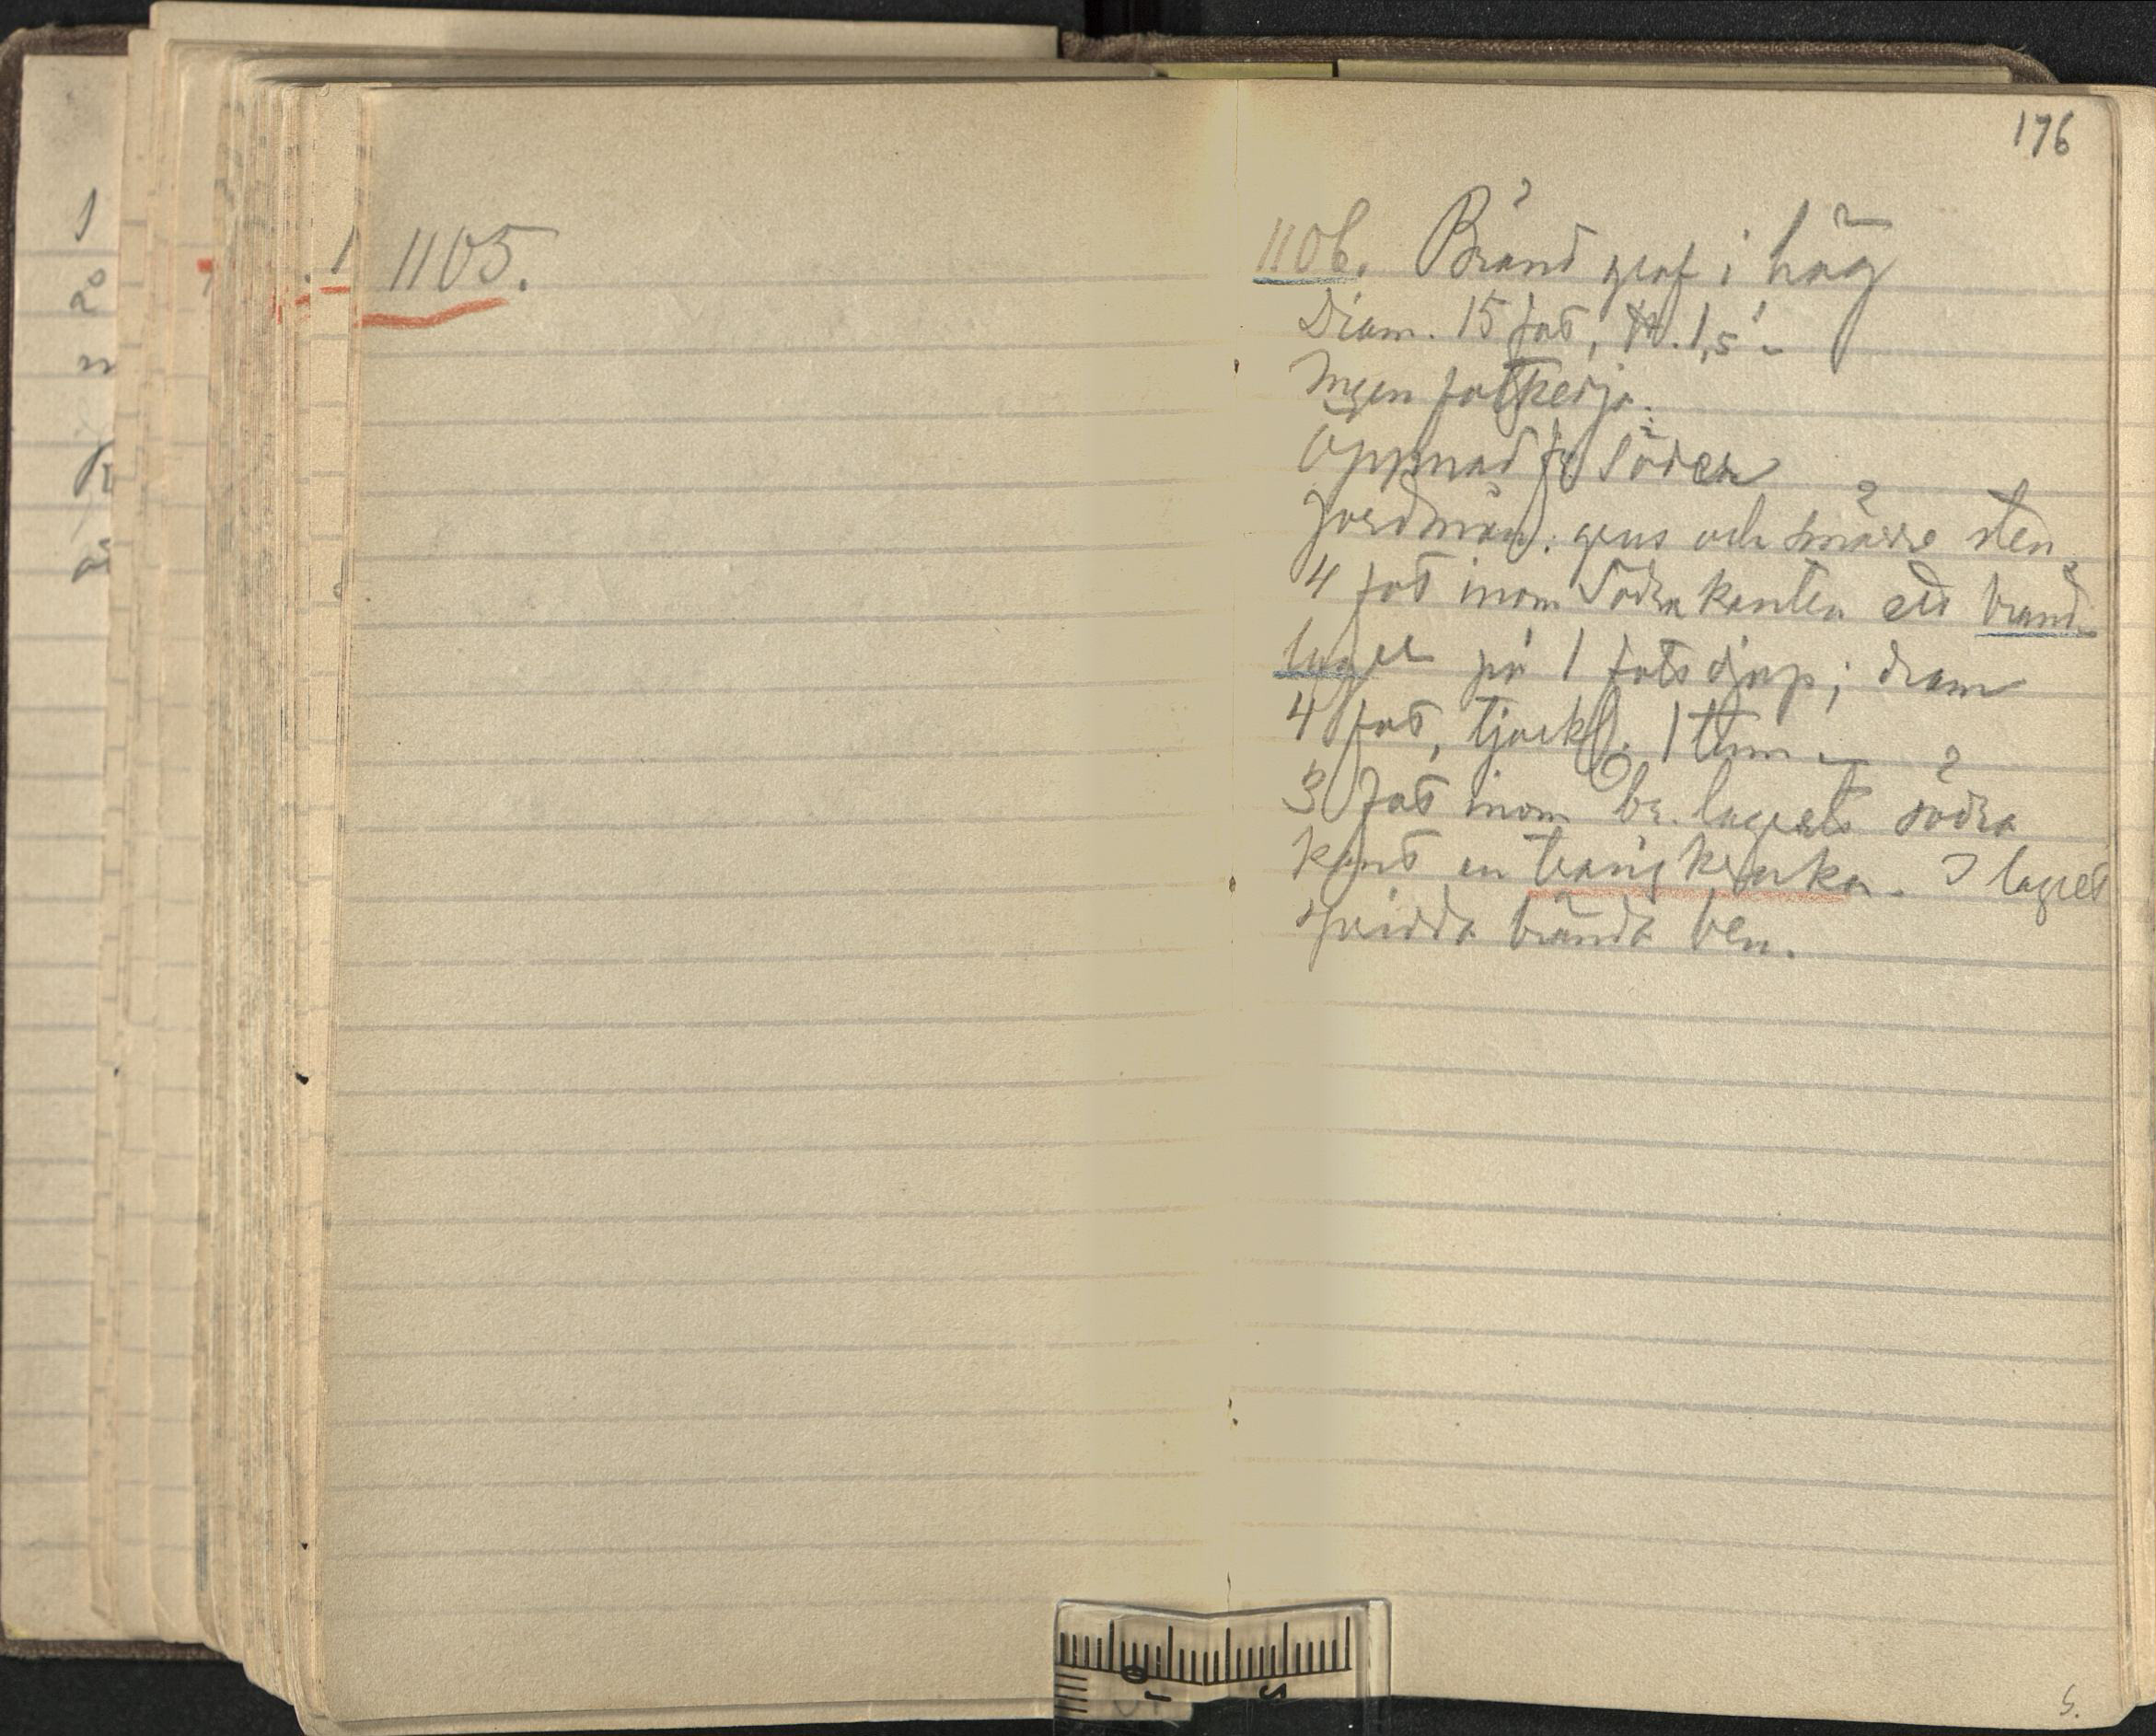 1105.
176
1106. Bränd graf i hög
Diam. 15 fot, H. 1,5'
Ingen fotkedja.
Öppnad fr Söder
Jordmån: grus och smärre sten
4 fot inom Södra kanten ett brand-
lager på 1 fots djup; diam
4 fot, tjockl. 1 tum
3 fot inom br. lagrets södra
kant en trasig kruka. I lagret
spridda brända ben.